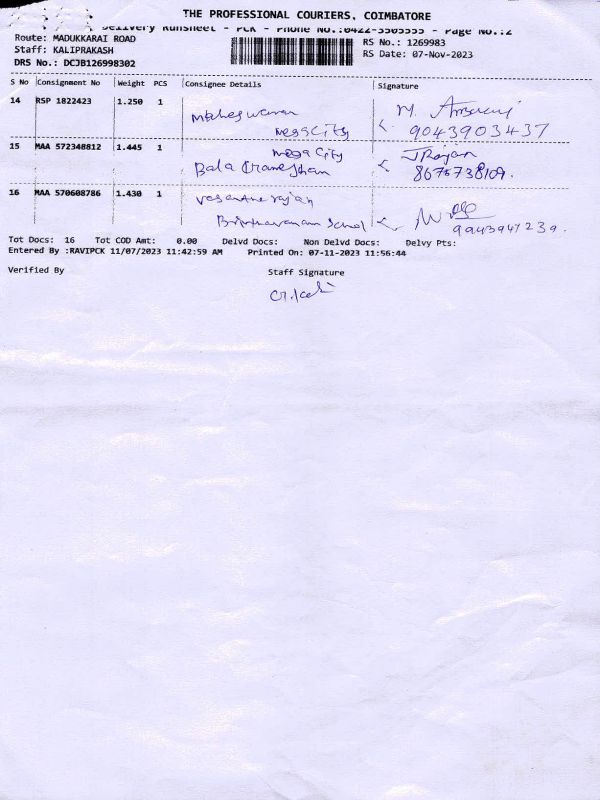 THE PROFESSIONAL COURIERS, COIMBATORE
Delivery Runsheet - PCK - Phone No.:0422-3505555 - Page No.:2
Route: MADUKKARAI ROAD
RS No.: 1269983
Staff: KALIPRAKASH
RS Date: 07-Nov-2023
DRS No.: DCJB126998302
S No Consignment No Weight PCS Consignee Details Signature
14 RSP 1822423 1.250 1
Maheswaran
mega City
9043903437
15 MAA 572348812 1.445 1
mega City
Bala
J Rajan
8675738109.
16 MAA 570608786 1.430 1
9943947239.
Tot Docs: 16 Tot COD Amt: 0.00 Delvd Docs: Non Delvd Docs: Delvy Pts:
Entered By :RAVIPCK 11/07/2023 11:42:59 AM Printed On: 07-11-2023 11:56:44
Verified By Staff Signature